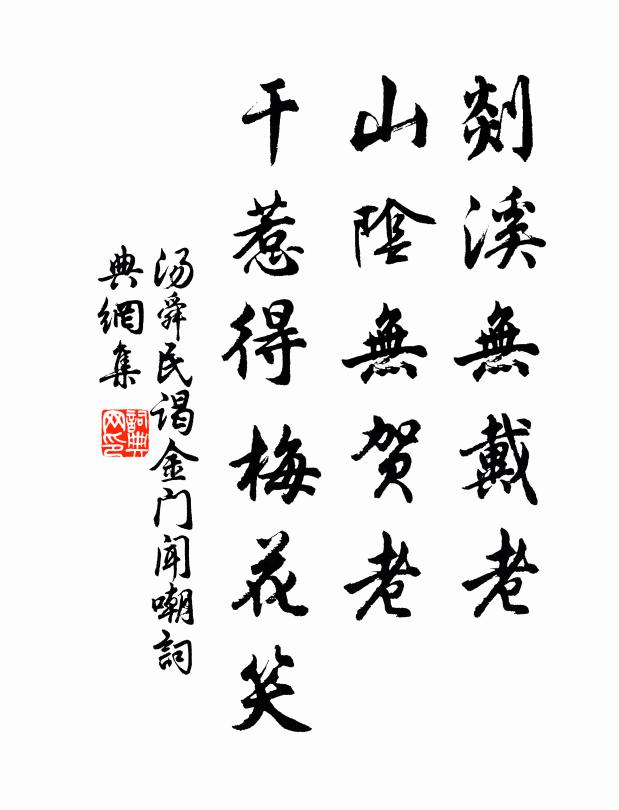 剡溪無戴老
山陰無贺老
干惹得梅花笑
汤舜民谒金门闻嘲詞
典網集
詞典网印